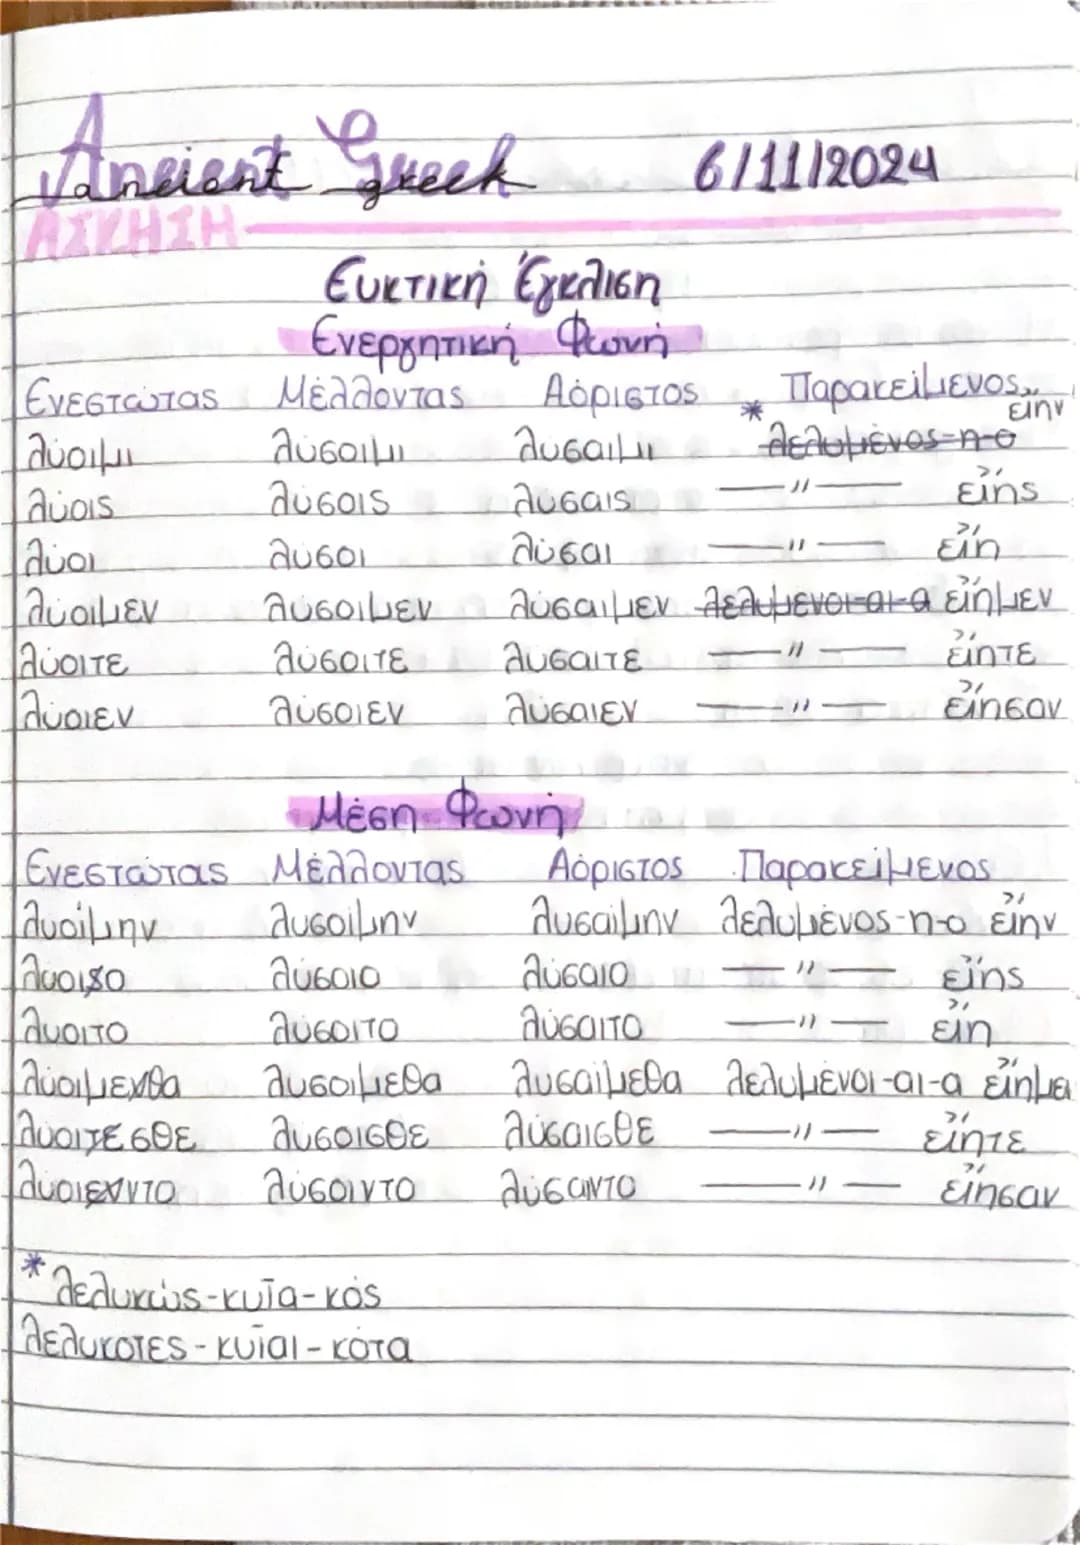 Ancient Greek 6/11/2024
ancient greek
ΑΣΚΗΣΗ
Ευκτική Έγκλιση
Ενεργητική Φωνή
Ενεστώτας Μέλλοντας Αόριστος Παρακείμενος
λύοιμι λύσοιμι λύσαιμι * λελυμένος-η-ο εἴην
λύοις λύσοις λύσαις —〃— εἴης
λύοι λύσοι λύσαι —〃— εἴη
λύοιμεν λύσοιμεν λύσαιμεν λελυμένοι-αι-α εἴημεν
λύοιτε λύσοιτε λύσαιτε —〃— εἴητε
λύοιεν λύσοιεν λύσαιεν —〃— εἴησαν
Μέση Φωνή
Ενεστώτας Μέλλοντας Αόριστος Παρακείμενος
λυοίμην λυσοίμην λυσαίμην λελυμένος-η-ο εἴην
λύοιο λύσοιο λύσαιο —〃— εἴης
λύοιτο λύσοιτο λύσαιτο —〃— εἴη
λυοίμεθα λυσοίμεθα λυσαίμεθα λελυμένοι-αι-α εἴημε
λύοισθε λύσοισθε λύσαισθε —〃— εἴητε
λύοιντο λύσοιντο λύσαιντο —〃— εἴησαν
* λελυκώς-κυῖα-κός
λελυκότες-κυῖαι-κότα